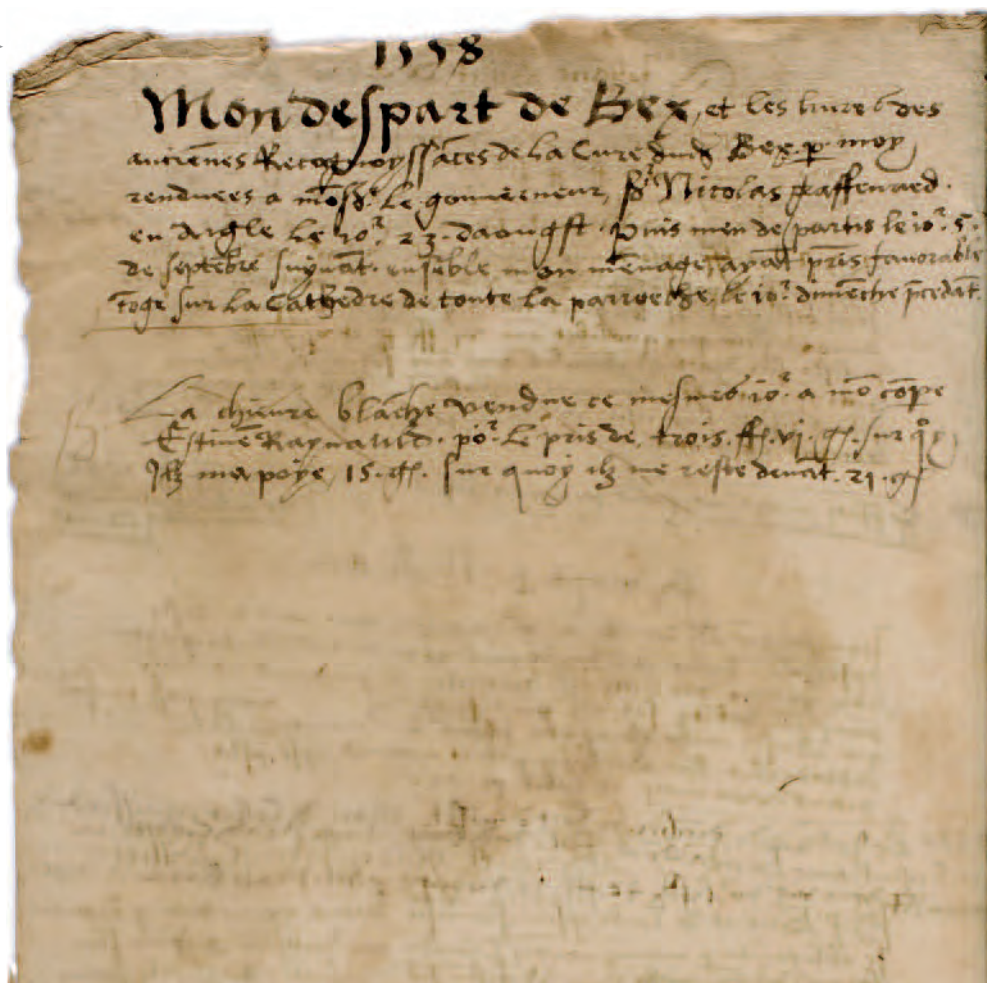 1558
Mon despart de Bex, et les livres des
anciēnes Recognoyssāces de la Cure dud Bex p moy
rendues a mōsr le gouverneur, sr Nicolas
en Aigle le ior 23 daougst. Puis men despartis le ior 5.
de septēbre suyvāt. ensēble mon mēnage, ayāt pris favorable
cōge sur la Cathedre de toute la parroche, le ior dimēche pcedāt.
La chievre blāche vendue ce mesmes ior a mō cōpe
Estievē . por le pris de trois. ff. vi. gr. sur qoy
Ilz ma poye 15. gr. sur quoy ilz me reste devāt. 21. gr